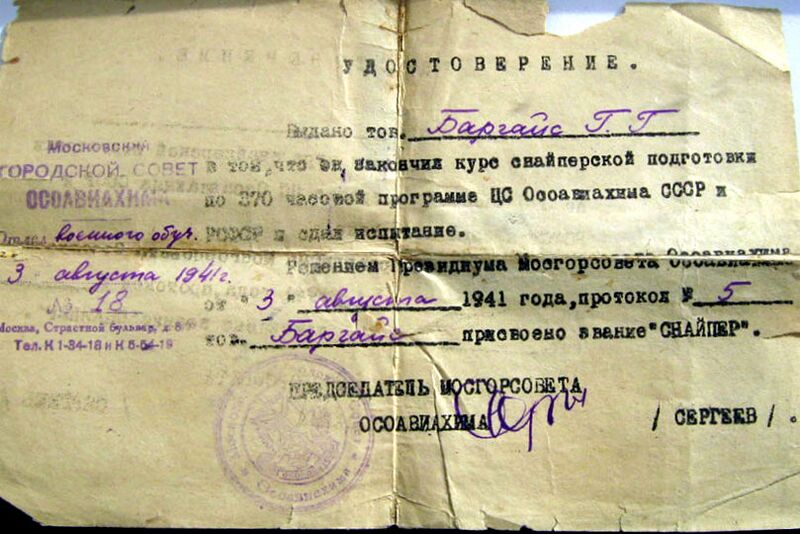 УДОСТОВЕРЕНИЕ.
Выдано тов. Баргайс Г. Г
в том, что он, закончил курс снайперской подготовки
по 370 часовой программе ЦС Осоавиахима СССР и
РСФСР и сдал испытание.
Решением Президиума Мосгорсовета Осоавиахима
от "3" августа 1941 года, протокол № 5
тов. Баргайс присвоено звание "СНАЙПЕР".
ПРЕДСЕДАТЕЛЬ МОСГОРСОВЕТА
ОСОАВИАХИМА / СЕРГЕЕВ /.
Московский
ГОРОДСКОЙ СОВЕТ
ОСОАВИАХИМА
Отдел военного обуч.
3 августа 1941г.
№ 18
Москва, Страстной бульвар, д. 8
Тел. К 1-84-18 и К 5-54-19